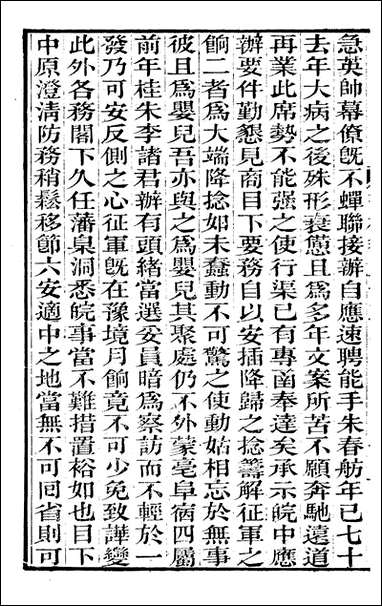 急英師幕僚旣不蟬聯接辦自應速聘能手朱春舫年已七十
去年大病之後殊形衰憊且爲多年文案所苦不願奔馳遠道
再業此席勢不能强之使行渠已有專函奉達矣承示皖中應
辦要件勤懇見商目下要務自以安插降歸之捻籌解征軍之
餉二者爲大端降捻如未蠢動不可驚之使動姑相忘於無事
彼且爲嬰兒吾亦與之爲嬰兒其聚處仍不外蒙亳阜宿四屬
前年桂朱李諸君辦有頭緒當選妥員暗爲察訪而不輕於一
發乃可安反側之心征軍旣在豫境月餉竟不可少免致譁變
此外各務閣下久任藩臬洞悉皖事當不難措置裕如也目下
中原澄淸防務稍鬆移節六安適中之地當無不可囘省則可